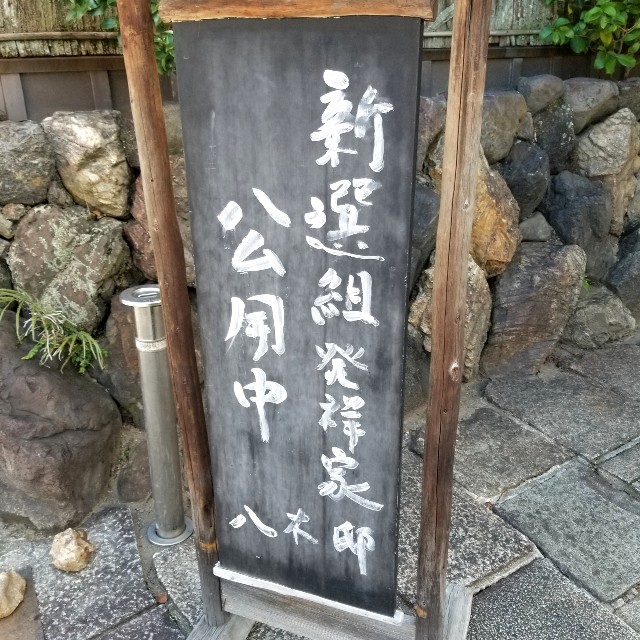 新選組発祥家
八木邸
公開中